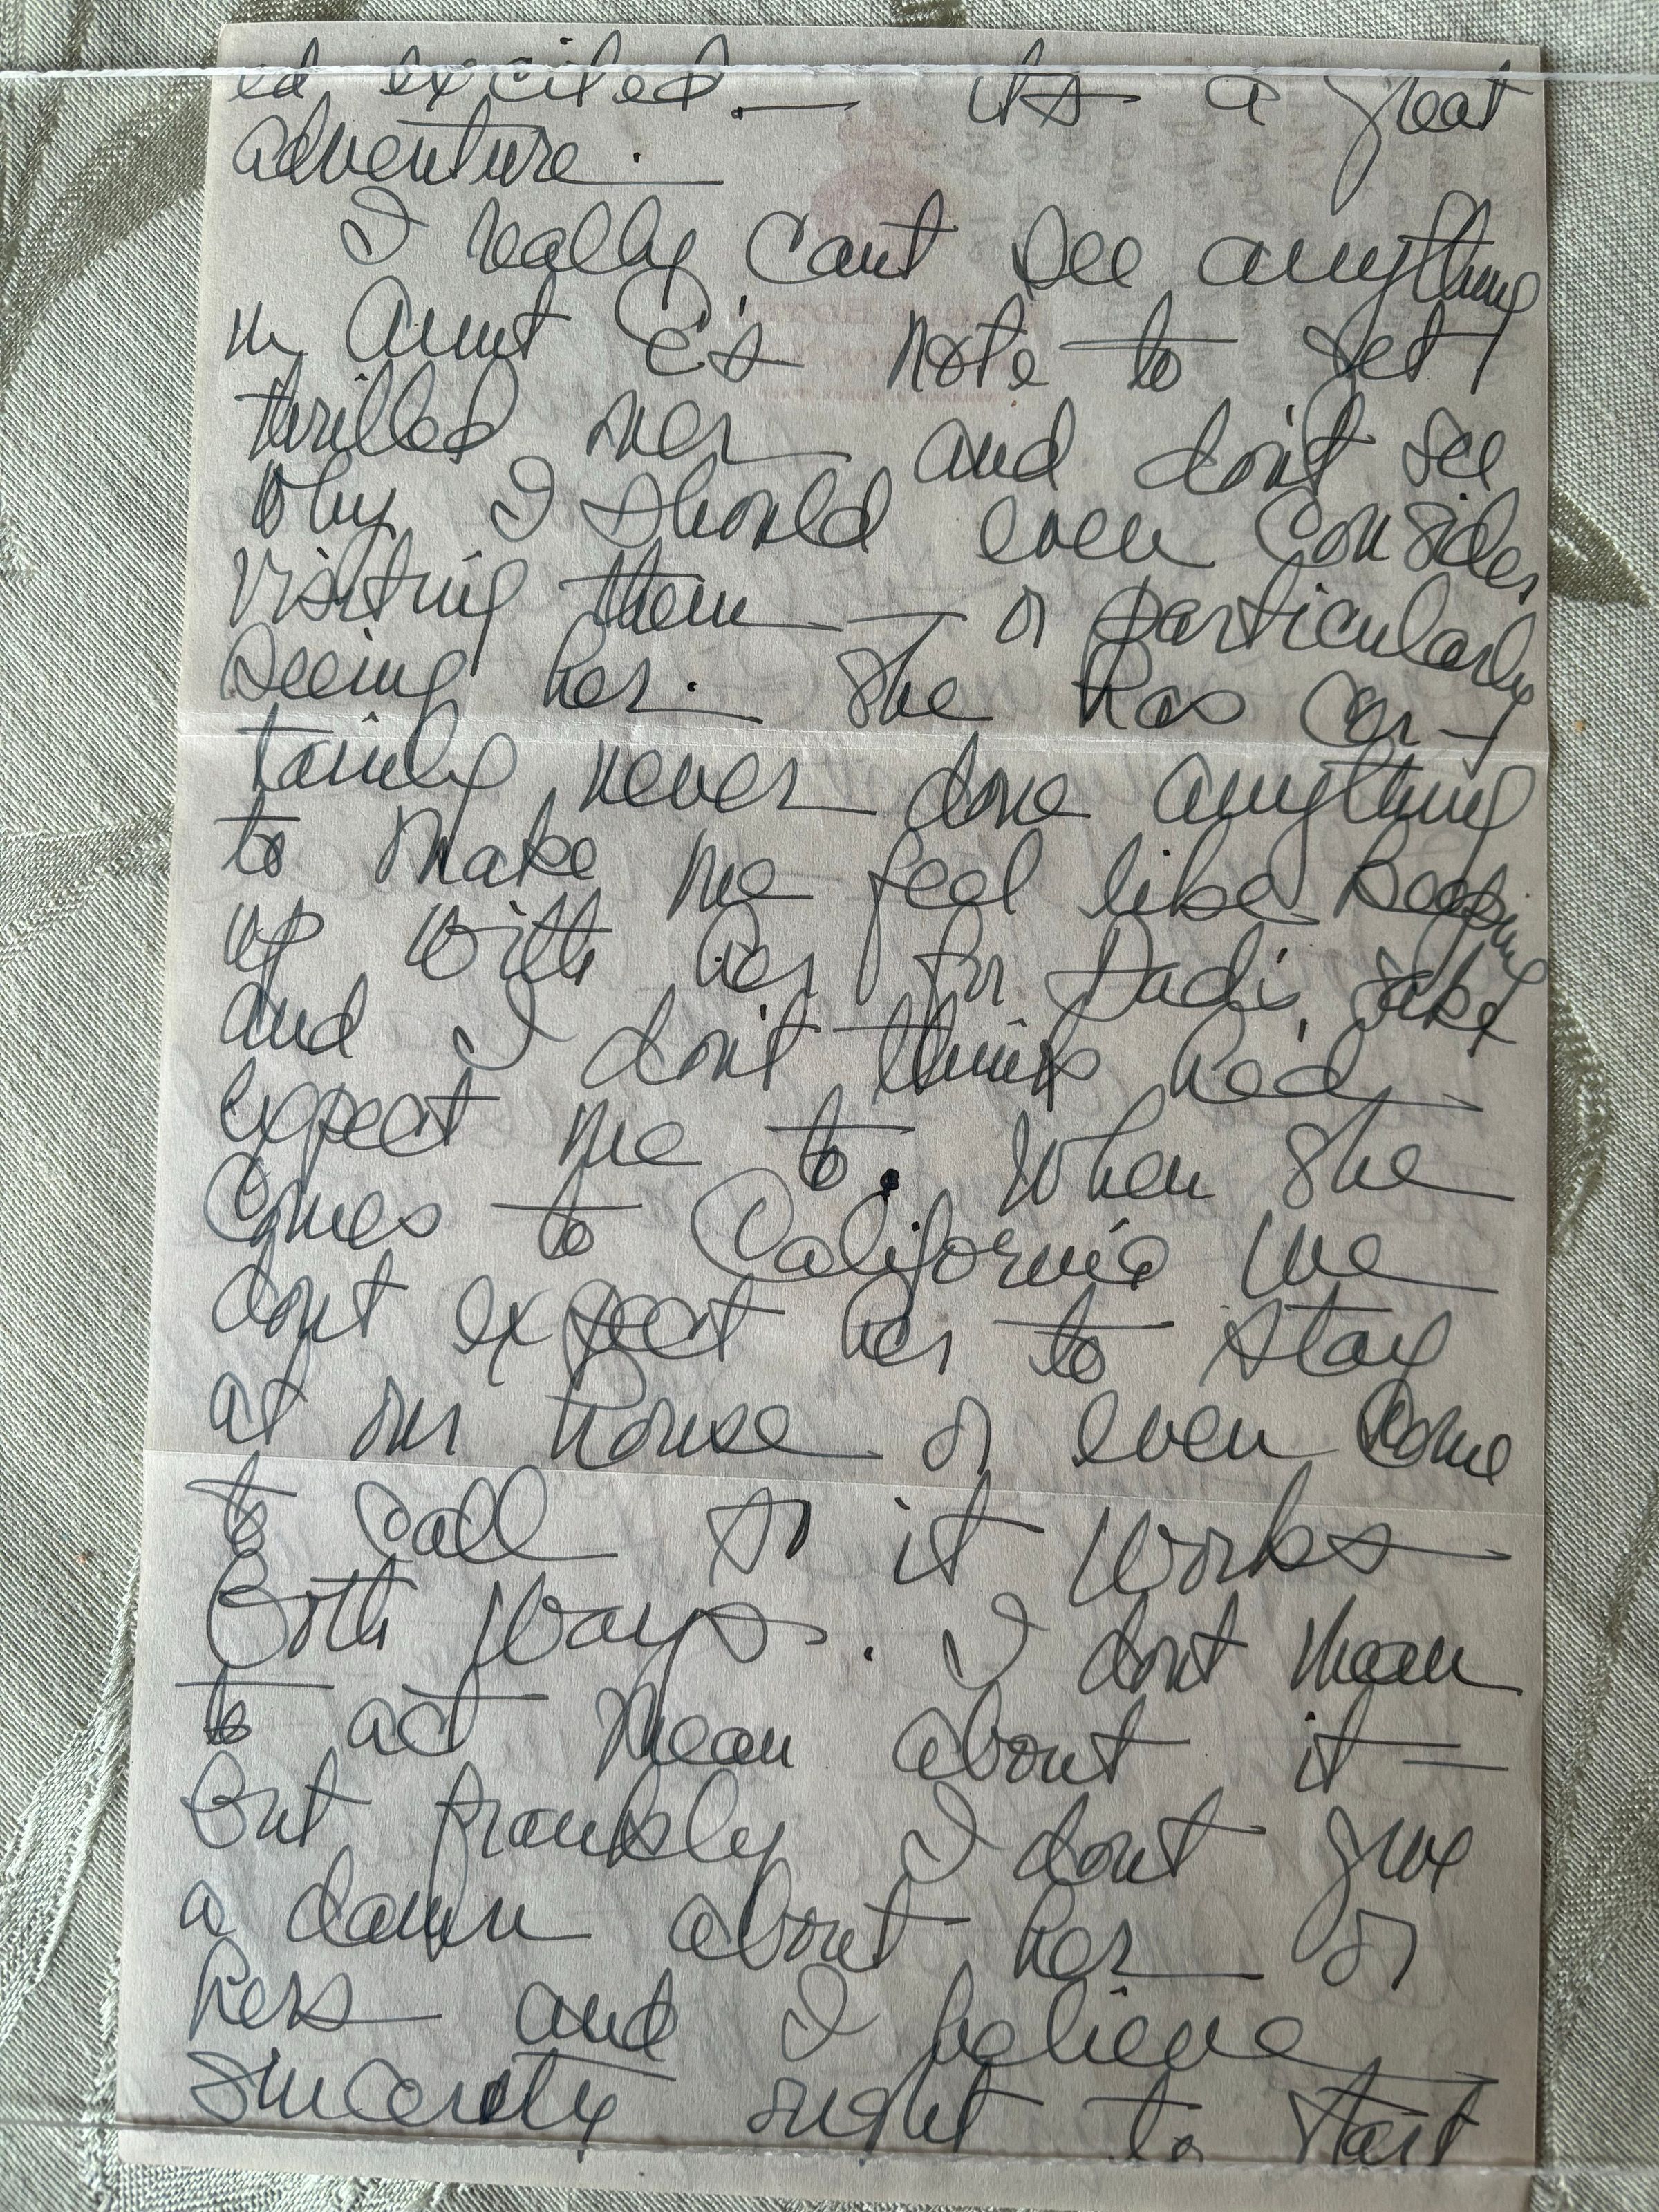 ed excited. — its a great
adventure.
I really cant see anything
in Aunt C's note to get
thrilled over and don't see
why I should even consider
visiting them — or particularly
seeing her. She has cer-
tainly never done anything
to make me feel like keeping
up with her for Dad's sake
and I don't think he'd
expect me to. When she
comes to California we
dont expect her to stay
at our house or even come
to call so it works
both ways. I dont mean
to act mean about it —
but frankly I dont give
a damn about her or
hers and I believe
sincerity ought to start